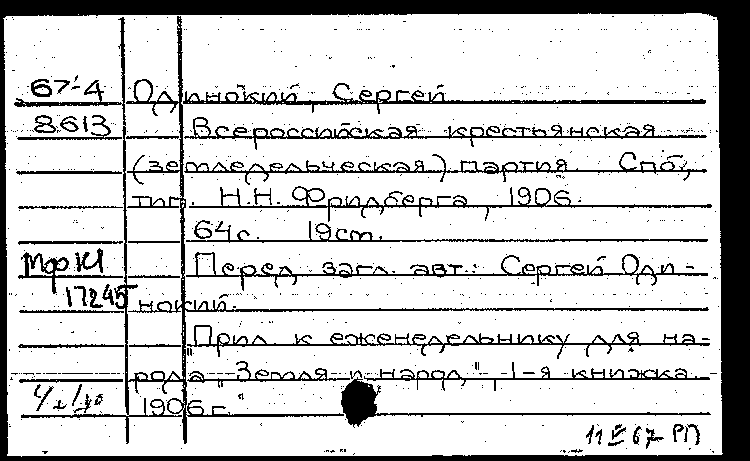 67-4 Одинокий, Сергей
8613 Всероссийская крестьянская
(земледельческая) партия Спб,
тип. Н.Н. Фридберга, 1906.
64с. 19см.
МфК1 Перед загл. авт.: Сергей Оди-
17245 нокий.
"Прил. к еженедельнику для на-
рода "Земля и народ," 1-я книжка
1906г."
67 РП